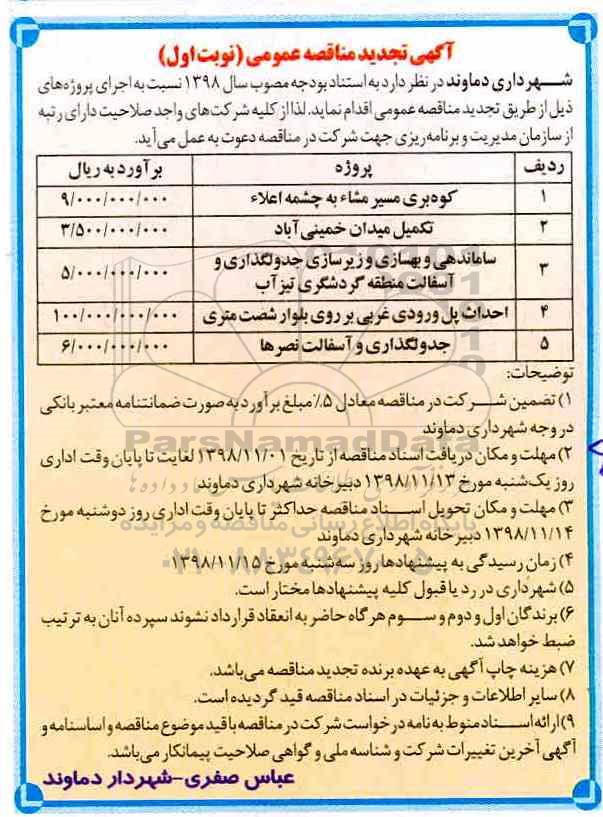 آگهی تجدید مناقصه عمومی (نوبت اول)
شهرداری دماوند در نظر دارد به استناد بودجه مصوب سال ۱۳۹۸ نسبت به اجرای پروژه‌های
ذیل از طریق تجدید مناقصه عمومی اقدام نماید. لذا از کلیه شرکت‌های واجد صلاحیت دارای رتبه
از سازمان مدیریت و برنامه‌ریزی جهت شرکت در مناقصه دعوت به عمل می‌آید.
ردیف پروژه برآورد به ریال
۱ کوه‌بری مسیر مشاء به چشمه اعلاء ۹/۰۰۰/۰۰۰/۰۰۰
۲ تکمیل میدان خمینی‌آباد ۳/۵۰۰/۰۰۰/۰۰۰
۳ ساماندهی و بهسازی و زیرسازی جدولگذاری و
آسفالت منطقه گردشگری تیزآب ۵/۰۰۰/۰۰۰/۰۰۰
۴ احداث پل ورودی غربی بر روی بلوار شصت متری ۱۰۰/۰۰۰/۰۰۰/۰۰۰
۵ جدولگذاری و آسفالت نصرها ۶/۰۰۰/۰۰۰/۰۰۰
توضیحات:
۱) تضمین شرکت در مناقصه معادل ۵٪ مبلغ برآورد به صورت ضمانتنامه معتبر بانکی
در وجه شهرداری دماوند
ParsNamadData
۲) مهلت و مکان دریافت اسناد مناقصه از تاریخ ۱۳۹۸/۱۱/۰۱ لغایت تا پایان وقت اداری
روز یک‌شنبه مورخ ۱۳۹۸/۱۱/۱۳ دبیرخانه شهرداری دماوند
۳) مهلت و مکان تحویل اسناد مناقصه حداکثر تا پایان وقت اداری روز دوشنبه مورخ
پایگاه اطلاع رسانی مناقصه و مزایده
۱۳۹۸/۱۱/۱۴ دبیرخانه شهرداری دماوند
۴) زمان رسیدگی به پیشنهادها روز سه‌شنبه مورخ ۱۳۹۸/۱۱/۱۵
۵) شهرداری در رد یا قبول کلیه پیشنهادها مختار است.
۶) برندگان اول و دوم و سوم هرگاه حاضر به انعقاد قرارداد نشوند سپرده آنان به ترتیب
ضبط خواهد شد.
۷) هزینه چاپ آگهی به عهده برنده تجدید مناقصه می‌باشد.
۸) سایر اطلاعات و جزئیات در اسناد مناقصه قید گردیده است.
۹) ارائه اسناد منوط به نامه درخواست شرکت در مناقصه با قید موضوع مناقصه و اساسنامه و
آگهی آخرین تغییرات شرکت و شناسه ملی و گواهی صلاحیت پیمانکار می‌باشد.
عباس صفری-شهردار دماوند